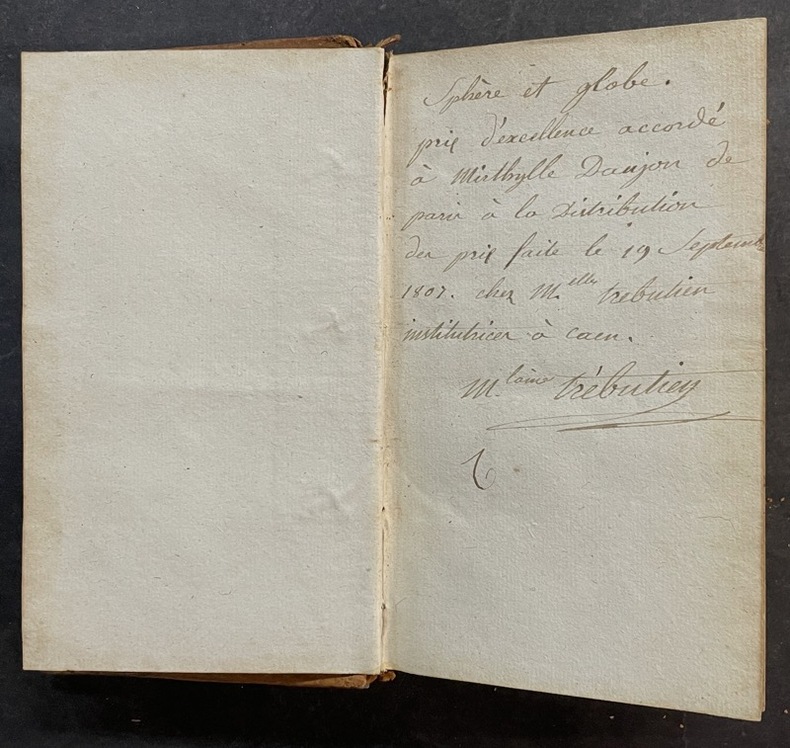 Sphère et globe.
prix d'excellence accordé
à Mirthylle Daujon de
paris à la Distribution
des prix faite le 19 Septembre
1807. chez M.elles trebutien
institutrices à caen.
M.laine trébutien